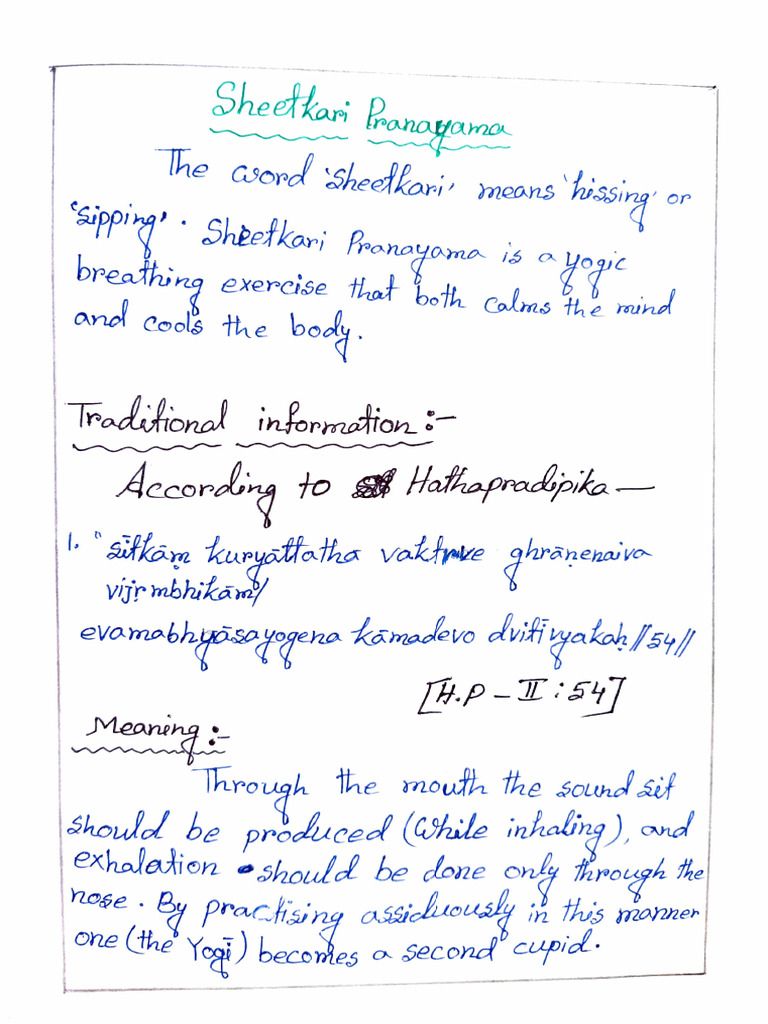 Sheetkari Pranayama
The word 'Sheetkari' means 'hissing' or
'sipping'. Sheetkari Pranayama is a yogic
breathing exercise that both calms the mind
and cools the body.
Traditional information:-
According to Hathapradipika—
1. "sītkāṃ kuryāttathā vaktrve ghrāṇenaiva
vijṛmbhikām/
evamabhyāsayogena kāmadevo dvitīvyakaḥ//54//
[H.P - II : 54]
Meaning:-
Through the mouth the sound sit
should be produced (While inhaling), and
exhalation should be done only through the
nose. By practising assiduously in this manner
one (the Yogī) becomes a second cupid.